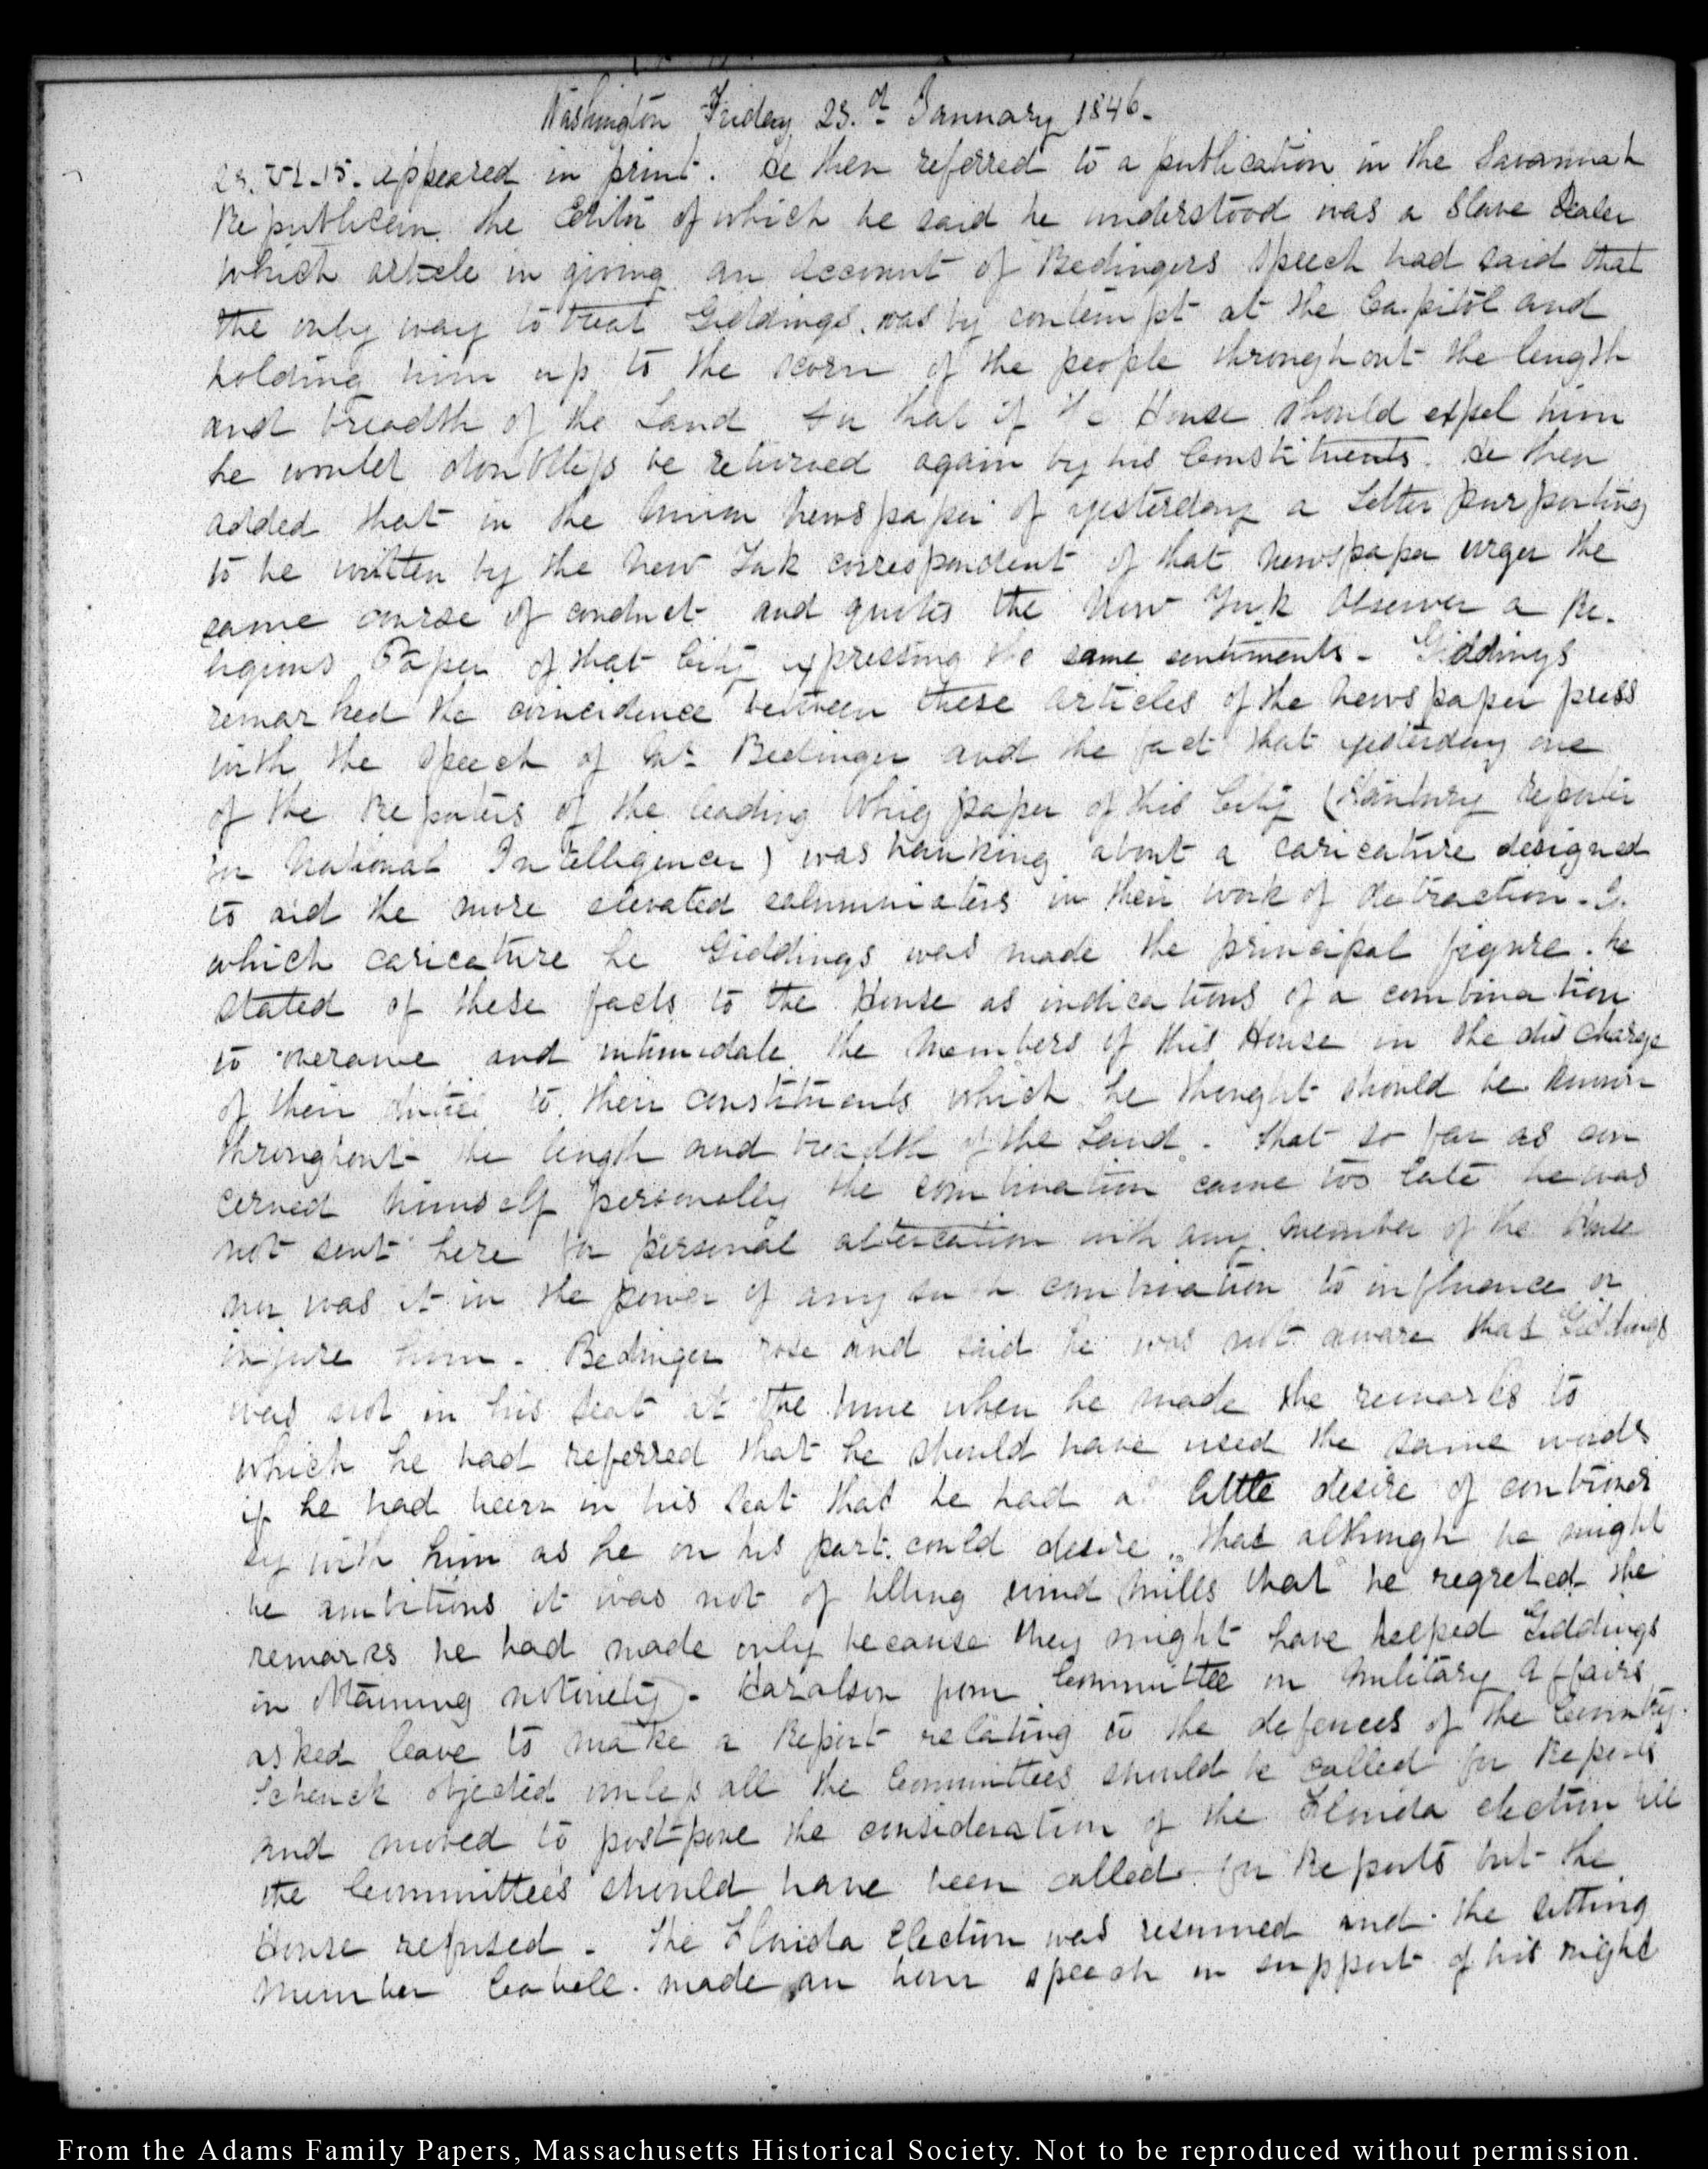 Washington Friday 23.d January 1846.
23. VI.15. appeared in print. He then referred to a publication in the Savannah
Republican the Editor of which he said he understood was a Slave Dealer
which article in giving an account of Bedingers Speech had said that
the only way to treat Giddings was by contempt at the Capitol and
holding him up to the scorn of the people throughout the length
and breadth of the Land for that if the House should expel him
he would doubtless be returned again by his Constituents. He then
added that in the Union Newspaper of yesterday a Letter purporting
to be written by the New York correspondent of that Newspaper urges the
same course of conduct and quotes the New York Observer a Re-
ligious Paper of that City expressing the same sentiments - Giddings
remarked the coincidence between these articles of the Newspaper press
with the Speech of Mr Bedinger and the fact that yesterday one
of the Reporters of the leading Whig paper of this City (Stansbury reporter
for National Intelligencer) was hawking about a caricature designed
to aid the more elevated calumniators in their work of detraction. In
which caricature he Giddings was made the principal figure. he
stated of these facts to the House as indications of a combination
to overawe and intimidate the Members of this House in the discharge
of their duties to their constituents which he thought should be known
throughout the length and breadth of the Land. that so far as con
cerned himself personally the combination came too late he was
not sent here for personal altercation with any member of the House
nor was it in the power of any such combination to influence or
injure him - Bedinger rose and said he was not aware that Giddings
was not in his seat at the time when he made the remarks to
which he had referred that he should have used the same words
if he had been in his seat that he had as little desire of controver
sy with him as he on his part could desire, that although he might
be ambitious it was not of tilting wind mills that he regreted the
remarks he had made only because they might have helped Giddings
in obtaining notoriety - Haralson from Committee on Military Affairs
asked leave to make a Report relating to the defences of the Country.
Schenck objected unless all the Committees should be called for Reports
and moved to postpone the consideration of the Florida election till
the Committees should have been called for Reports but the
House refused - The Florida Election was resumed and the sitting
Member Cabell made an hour speech in support of his right
From the Adams Family Papers, Massachusetts Historical Society. Not to be reproduced without permission.